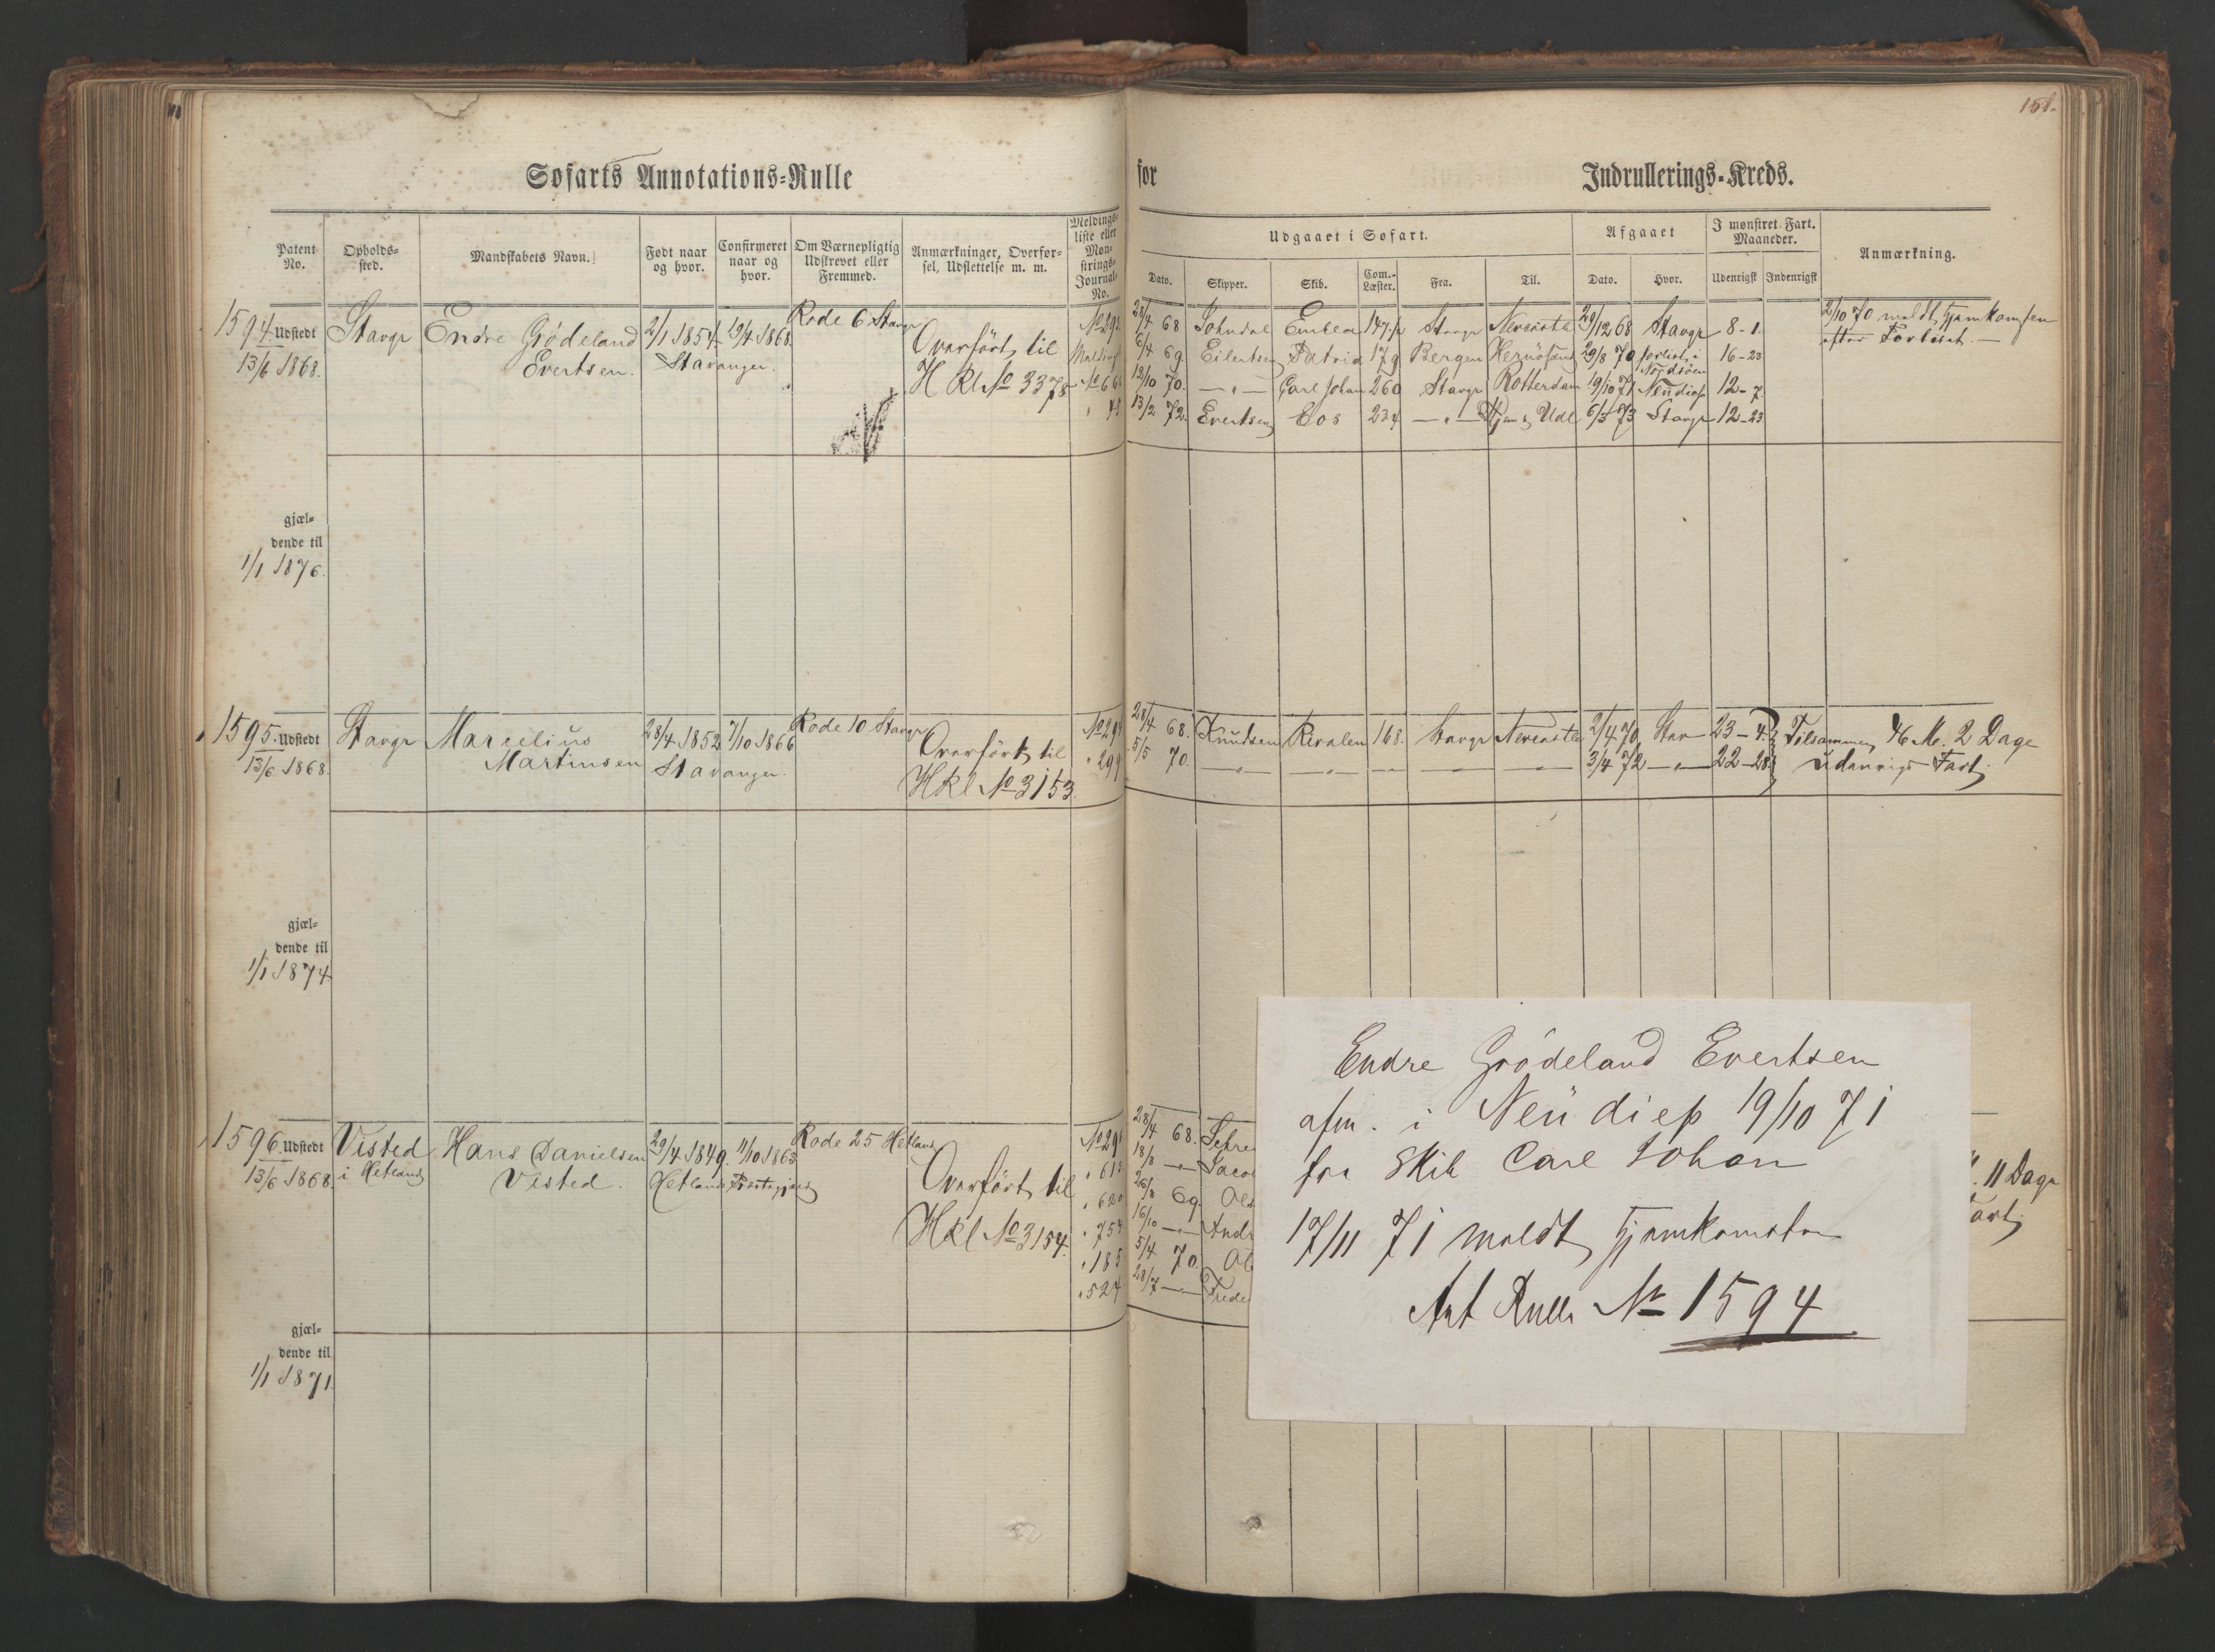 151.
Søfarts Annotations=Rulle
for
Indrullerings=Kreds.
Patent No.
Opholds=sted.
Mandskabets Navn.
Født naar og hvor.
Confirmeret naar og hvor.
Om Værnepligtig Udskrevet eller Fremmed.
Anmærkninger, Overførsel, Udslettelse m. m.
Meldingsliste eller Mønstrings=Journal=No.
Udgaaet i Søfart.
Dato.
Skipper.
Skib.
Com.=Læster.
Fra.
Til.
Afgaaet
Dato.
Hvor.
I mønstret Fart. Maaneder.
Udenrigsk
Indenrigsk
Anmærkning.
1594 Udstedt
13/6 1868.
Stavgr
Endre Grödeland
Evertsen.
2/1 1854
Stavanger.
19/4 1868.
Rode 6 Stavgr
Overført til
H Kl No 3378
28/4 68
Embla
147½
Stavgr
Newcastle
29/12 68
Stavgr
8-1.
6/4 69
Eilertsen
Patria
179
Bergen
Hernösand
29/8 70
forlist i
Nordsöen
16-23
12/10 70.
—„—
Carl Johan
260
Stavgr
Rotterdam
19/10 71
Neudiep
12-7
13/2 72.
Evertsen
Eos
234
—„—
6/3 73
Stavgr
12-23
2/10 70 meldt Hjemkomsten
efter Forliset.—
gjæl=
dende til
1/1 1876.
1595. Udstedt
13/6 1868.
Stavgr
Marcelius
Martinsen
28/4 1852
Stavanger.
7/10 1866
Rode 10 Stavgr
Overført til
Hkl No 3153.
" 299
28/4 68.
Knudsen
168.
Stavgr
Newcastle
2/4 70
Stav
23-4.
5/5 70.
3/4 72
—„—
22-28.
Tilsammen 46 M. 2 Dage
udenrigs Fart
gjæl=
dende til
1/1 1874
1596. Udstedt
13/6 1868.
Visted
i Hetland
Hans Danielsen
Visted.
29/4 1849.
Hetland
11/10 1863
Rode 25 Hetland
Overført til
Hkl No 3154.
" 620
" 754
" 185
" 527
28/4 68.
18/8
26/8 69
16/10
Andr
5/4 70.
28/7
Frede
11 Dage
gjæl=
dende til
1/1 1871.
Endre Grödeland Evertsen
afm. i Neu diep 19/10 71
fra Skib Carl Johan
17/11 71 meldt Hjemkomsten
Ant Rulle No 1594